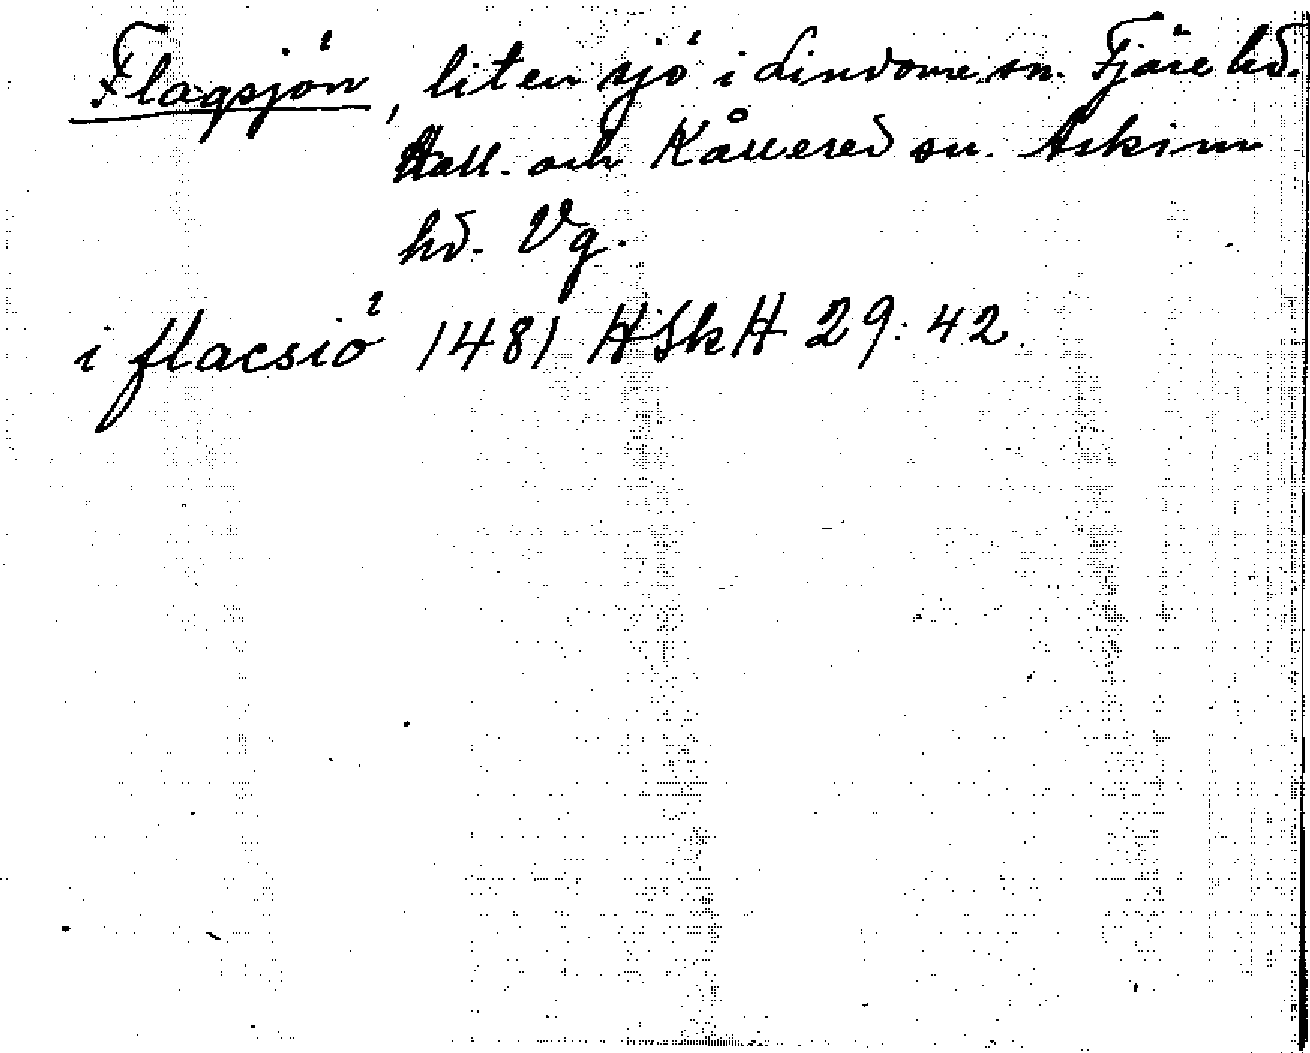 Flagsjön, liten sjö i Lindome sn. Fjäre hd.
Hall. och Kållered sn. Askim
hd. Vg.
i flacsiö 1481 HSkH 29:42